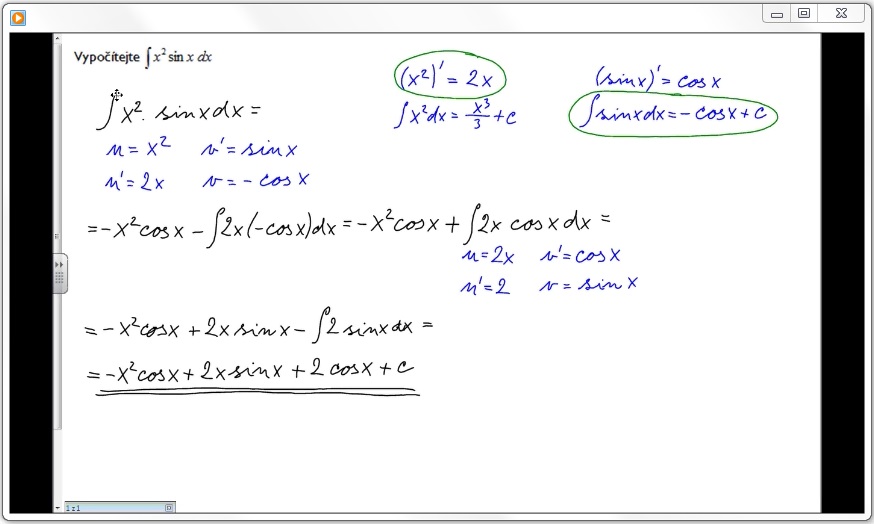 Vypočítejte ∫x² sin x dx
(x²)' = 2x
(sinx)' = cosx
∫x². sinxdx =
∫x²dx = x³/3 + c
∫sinxdx = -cosx + c
u = x² v' = sinx
u' = 2x v = -cosx
= -x²cosx - ∫2x(-cosx)dx = -x²cosx + ∫2x cosxdx =
u = 2x v' = cosx
u' = 2 v = sinx
= -x²cosx + 2x sinx - ∫2 sinxdx =
= -x²cosx + 2x sinx + 2 cosx + c
1 z 1